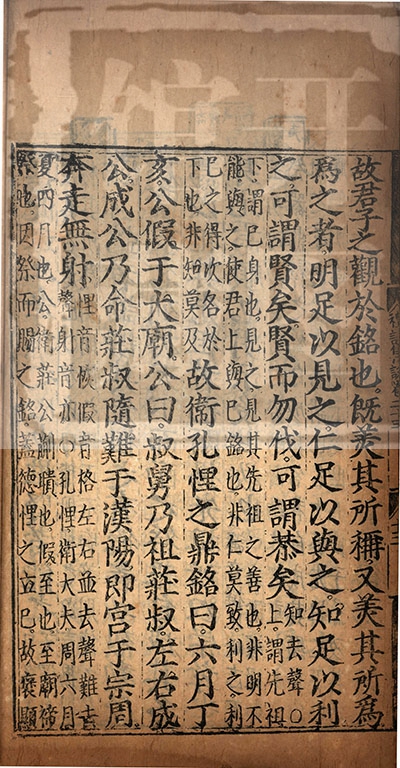 故君子之觀於銘也。旣美其所稱又美其所爲
爲之者明足以見之。仁足以與之。知足以利
之。可謂賢矣。賢而勿伐。可謂恭矣知去聲○上謂先祖
下謂已身也。見之見其先祖之善也。非明不
能與之使君上與已銘也。非仁莫致。利之利
已之得次名於下也非知莫及故衞孔悝之鼎銘曰。六月丁
亥。公假于大廟。公曰。叔舅乃祖莊叔。左右成
公。成公乃命莊叔隨難于漢陽即宮于宗周
奔走無射悝音恢假音格左右並去聲難去聲射音亦○孔悝衛大夫周六月
夏四月也。公衛莊公蒯聵也假至也至廟禘
祭也。因祭而賜之銘。蓋德悝之立已。故褒顯